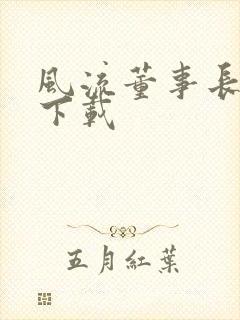 風流董事長
下載
五月紅葉